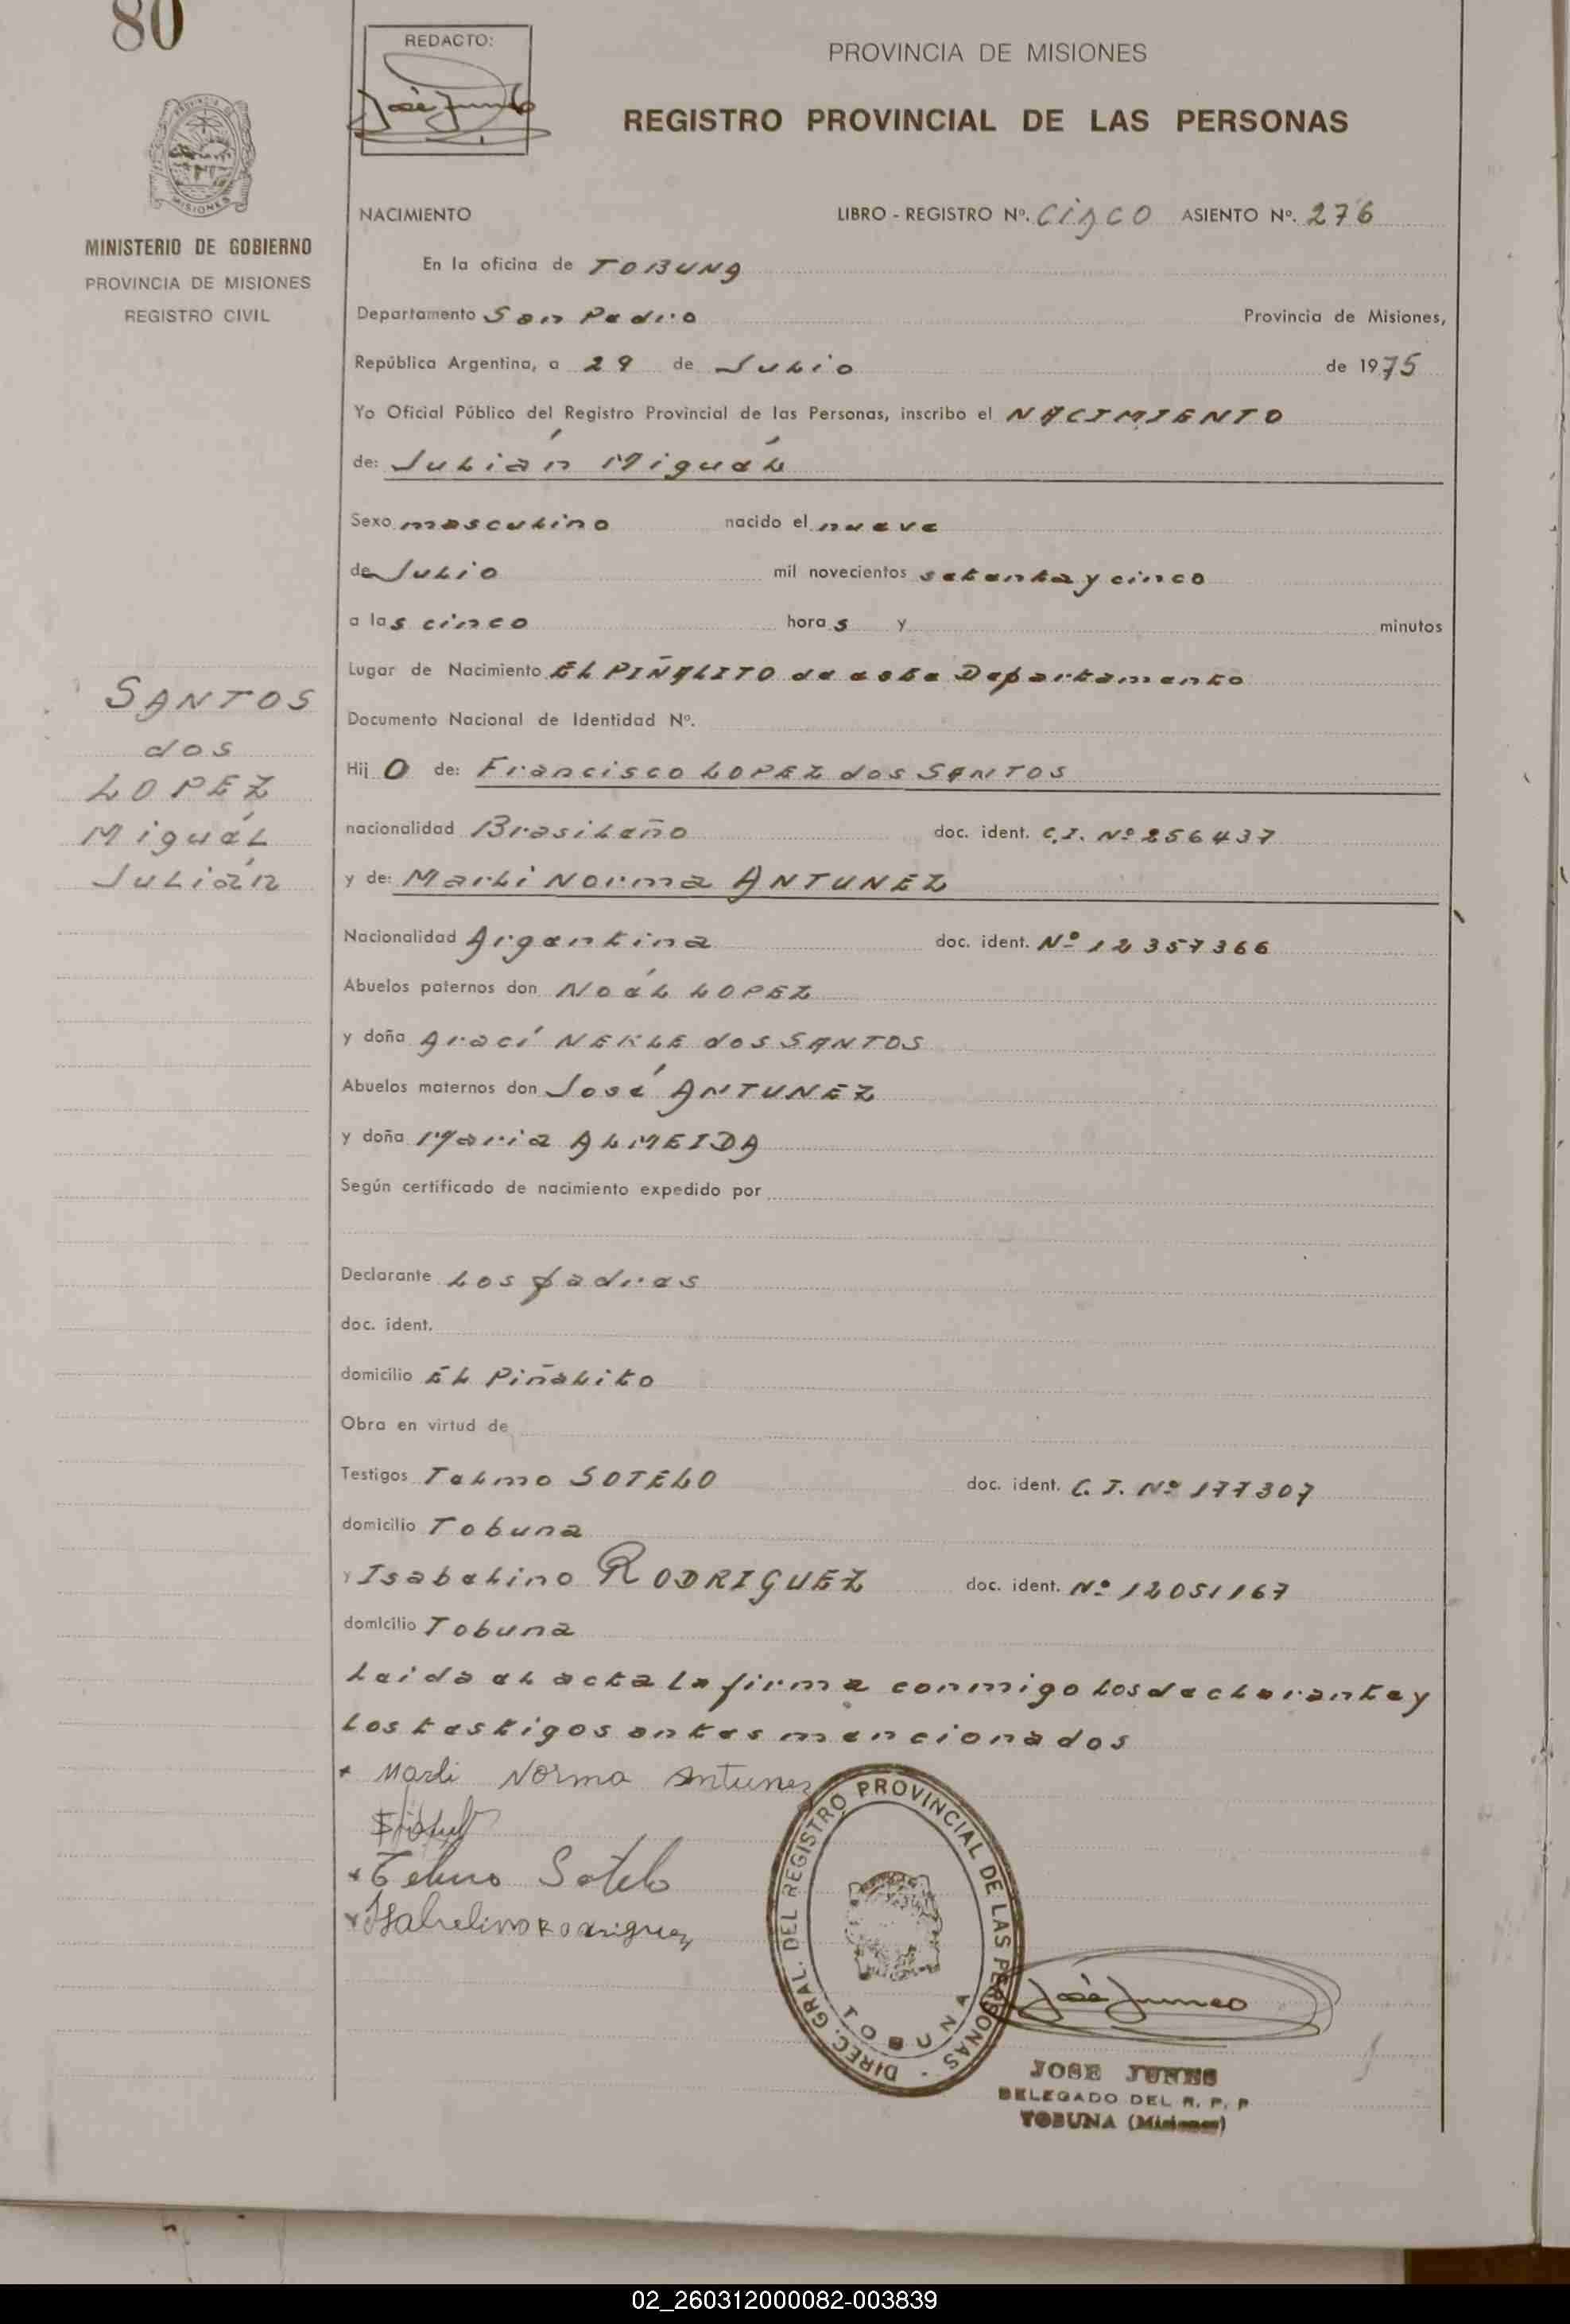 80
REDACTO:
José Junes
PROVINCIA DE MISIONES
REGISTRO PROVINCIAL DE LAS PERSONAS
PROVINCIA DE MISIONES
MINISTERIO DE GOBIERNO
PROVINCIA DE MISIONES
REGISTRO CIVIL
NACIMIENTO LIBRO - REGISTRO Nº. CINCO ASIENTO Nº. 276
En la oficina de TOBUNA
Departamento San Pedro Provincia de Misiones,
República Argentina, a 29 de Julio de 1975
Yo Oficial Público del Registro Provincial de las Personas, inscribo el NACIMIENTO
de: Julián Miguél
Sexo masculino nacido el nueve
de Julio mil novecientos setenta y cinco
a las cinco horas y minutos
Lugar de Nacimiento EL PIÑALITO de este Departamento
Documento Nacional de Identidad Nº.
Hijo de: Francisco LOPEZ dos SANTOS
nacionalidad Brasileño doc. ident. C.I. Nº 256437
y de: Marli Norma ANTUNEZ
Nacionalidad Argentina doc. ident. Nº 12357366
Abuelos paternos don Noél LOPEZ
y doña Arací NEKLE dos SANTOS
Abuelos maternos don José ANTUNEZ
y doña Maria ALMEIDA
Según certificado de nacimiento expedido por
Declarante Los padres
doc. ident.
domicilio El Piñalito
Obra en virtud de
Testigos Telmo SOTELO doc. ident. C.I. Nº 177307
domicilio Tobuna
y Isabelino RODRIGUEZ doc. ident. Nº 12051167
domicilio Tobuna
Leida el acta la firma conmigo los declarante y
los testigos antes mencionados
SANTOS
dos
LOPEZ
Miguél
Julián
Marli Norma Antunez
Telmo Sotelo
Isabelino Rodriguez
DIREC. GRAL. DEL REGISTRO PROVINCIAL DE LAS PERSONAS -
TOBUNA
José Junes
JOSE JUNES
DELEGADO DEL R. P. P
TOBUNA (Misiones)
02_260312000082-003839